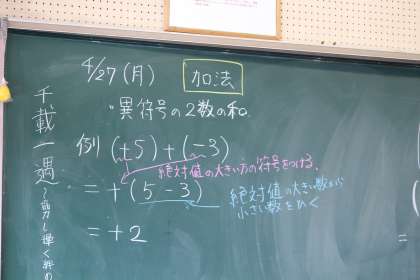 4/27(月) 加法
異符号の2数の和
例 (+5)+(-3)
絶対値の大きい方の符号をつける。
= +(5-3)
絶対値の大きい数から
小さい数をひく
= +2
千載一遇